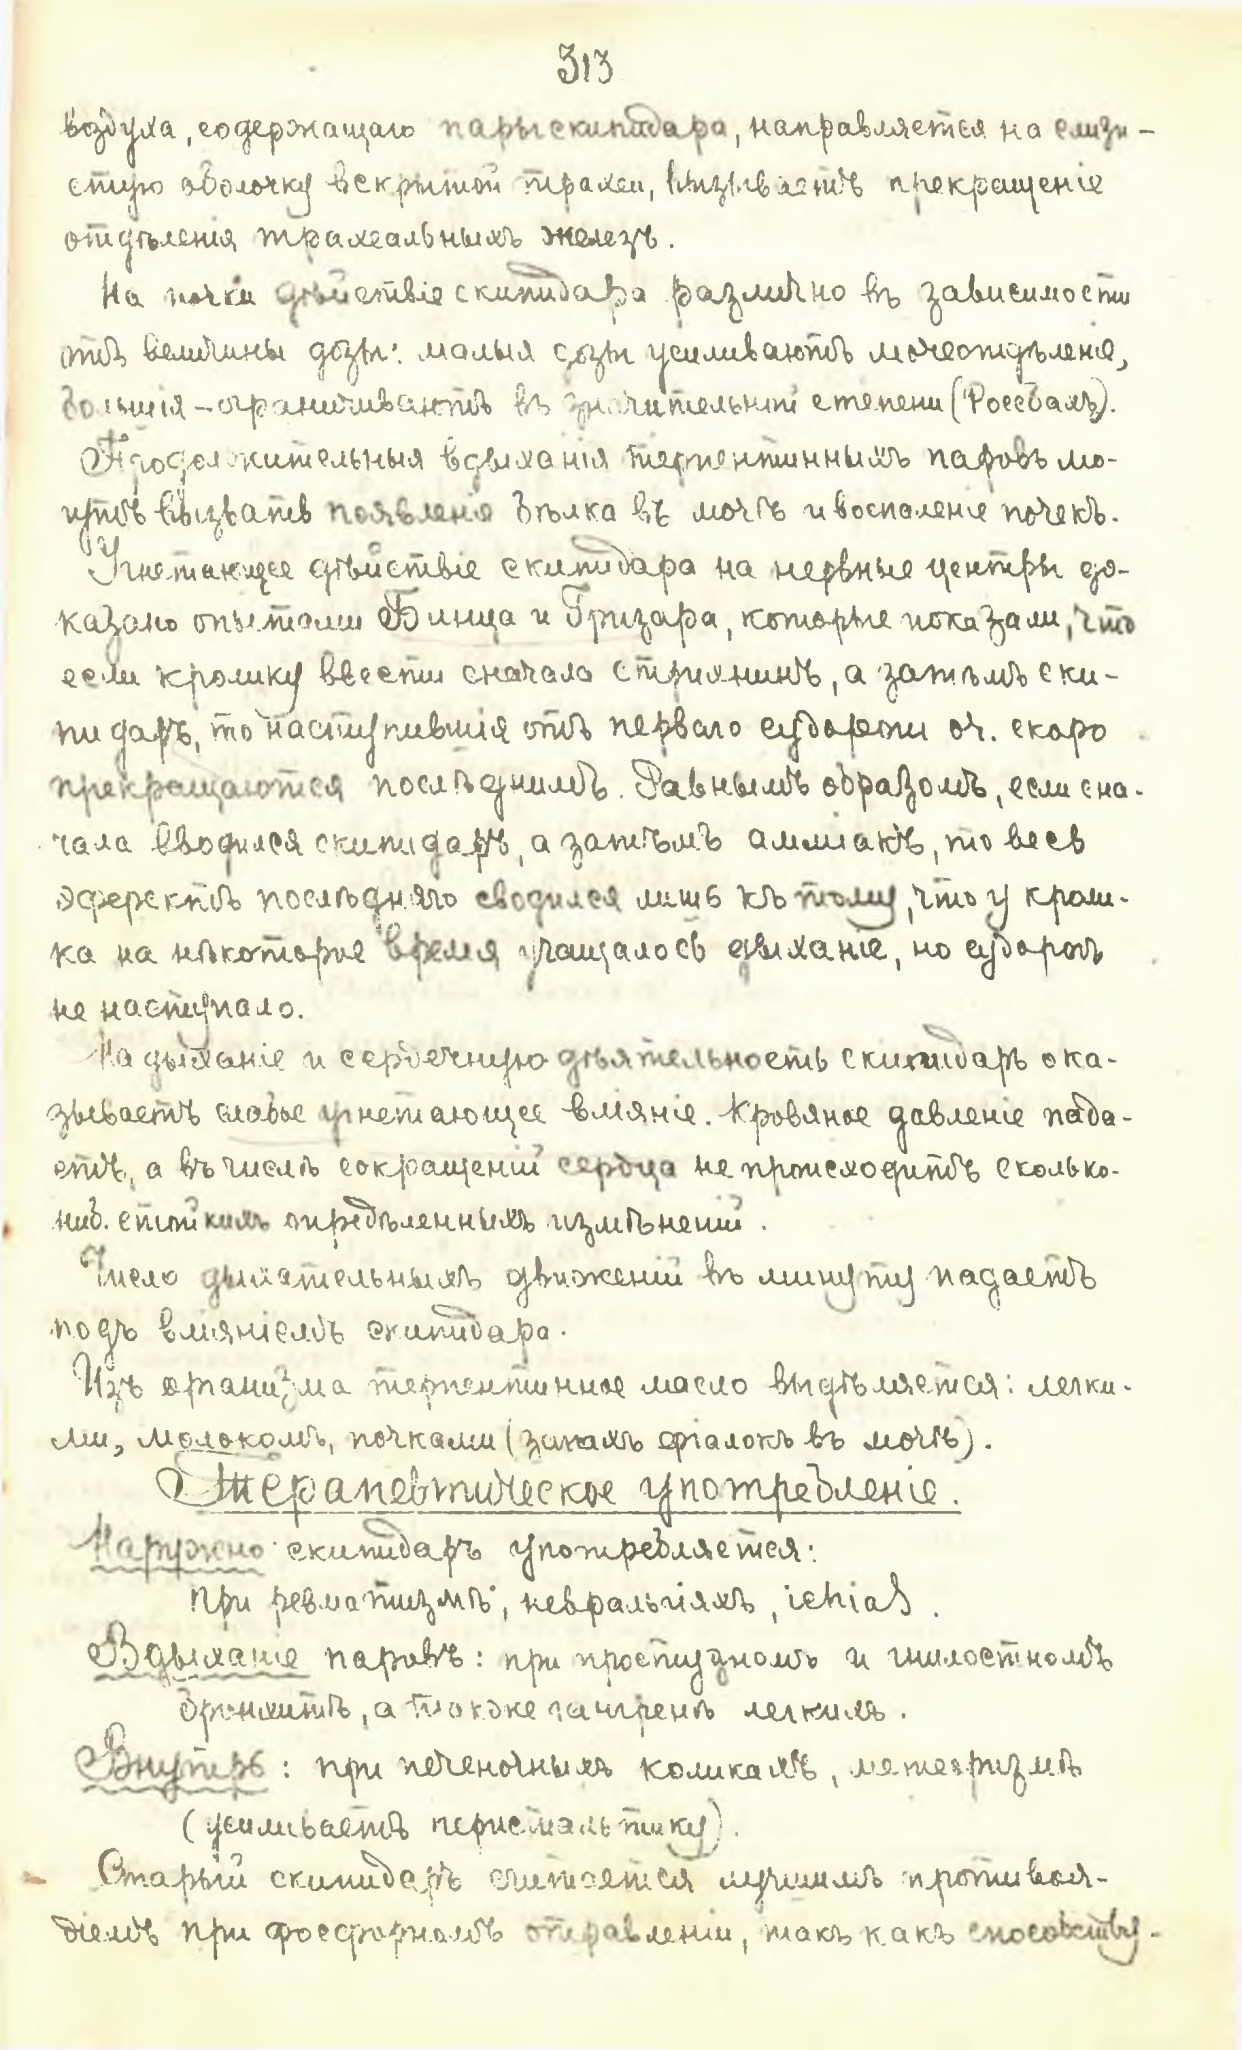 313
воздуха, содержащаго пары скипидара, направляется на слизи-
стую оболочку вскрытой трахеи, вызываетъ прекращеніе
отдѣленія трахеальныхъ железъ.
На почки дѣйствіе скипидара различно въ зависимости
отъ величины дозы: малыя дозы усиливаютъ мочеотдѣленіе,
большія – ограничиваютъ въ значительной степени (Россбахъ).
Продолжительныя вдыханія терпентинныхъ паровъ мо-
гутъ вызвать появленіе бѣлка въ мочѣ и воспаленіе почекъ.
Угнетающее дѣйствіе скипидара на нервные центры до-
казано опытами Бинца и Гризара, которые показали, что
если кролику ввести сначала стрихнинъ, а затѣмъ ски-
пидаръ, то наступившія отъ перваго судороги оч. скоро
прекращаются послѣднимъ. Равнымъ образомъ, если сна-
чала вводился скипидаръ, а затѣмъ амміакъ, то весь
эфферктъ послѣдняго сводился лишь къ тому, что у кроли-
ка на нѣкоторое время учащалось дыханіе, но судорогъ
не наступало.
На дыханіе и сердечную дѣятельность скипидаръ ока-
зываетъ слабое угнетающее вліяніе. Кровяное давленіе пада-
етъ, а въ числѣ сокращеній сердца не происходитъ сколько-
ниб. стойкихъ опредѣленныхъ измѣненій.
Число дыхательныхъ движеній въ минуту падаетъ
подъ вліяніемъ скипидара.
Изъ организма терпентинное масло выдѣляется: легки-
ми, молокомъ, почками (запахъ фіалокъ въ мочѣ).
Терапевтическое употребленіе.
Наружно скипидаръ употребляется:
при ревматизмѣ, невральгіяхъ, ichias.
Вдыханіе паровъ: при простудномъ и гнилостномъ
бронхитѣ, а также гангренѣ легкихъ.
Внутрь: при печеночныхъ коликахъ, метеоризмѣ
(усиливаетъ перистальтику).
Старый скипидаръ считается лучшимъ противоя-
діемъ при фосфорномъ отравленіи, такъ какъ способству-